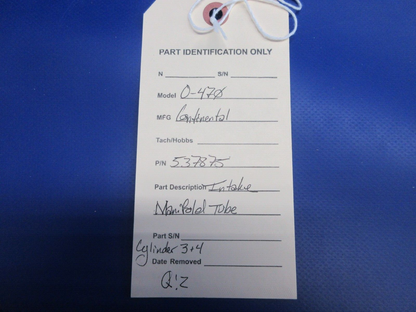 PART IDENTIFICATION ONLY
N S/N
Model O-470
MFG Continental
Tach/Hobbs
P/N 537875
Part Description Intake
Manifold Tube
Part S/N
Cylinder 3+4
Date Removed
Q:2